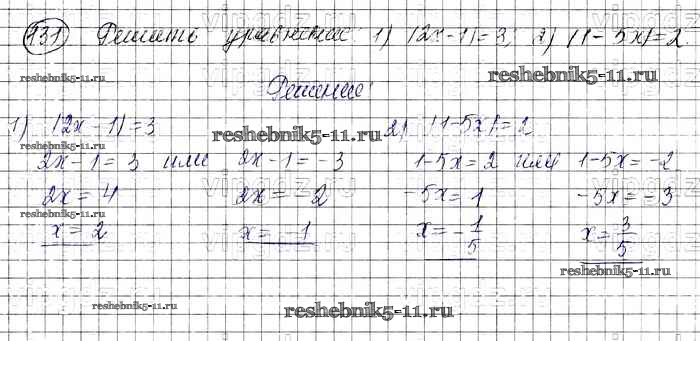 131 Решить уравнение: 1) |2x-1|=3; 2) |1-5x|=2
reshebnik5-11.ru
Решение:
1) |2x-1|=3 2) |1-5x|=2
reshebnik5-11.ru
2x-1=3 или 2x-1=-3 1-5x=2 или 1-5x=-2
reshebnik5-11.ru
2x=4 2x=-2 -5x=1 -5x=-3
reshebnik5-11.ru
x=2 x=-1 x=-1/5 x=3/5
reshebnik5-11.ru
reshebnik5-11.ru
reshebnik5-11.ru